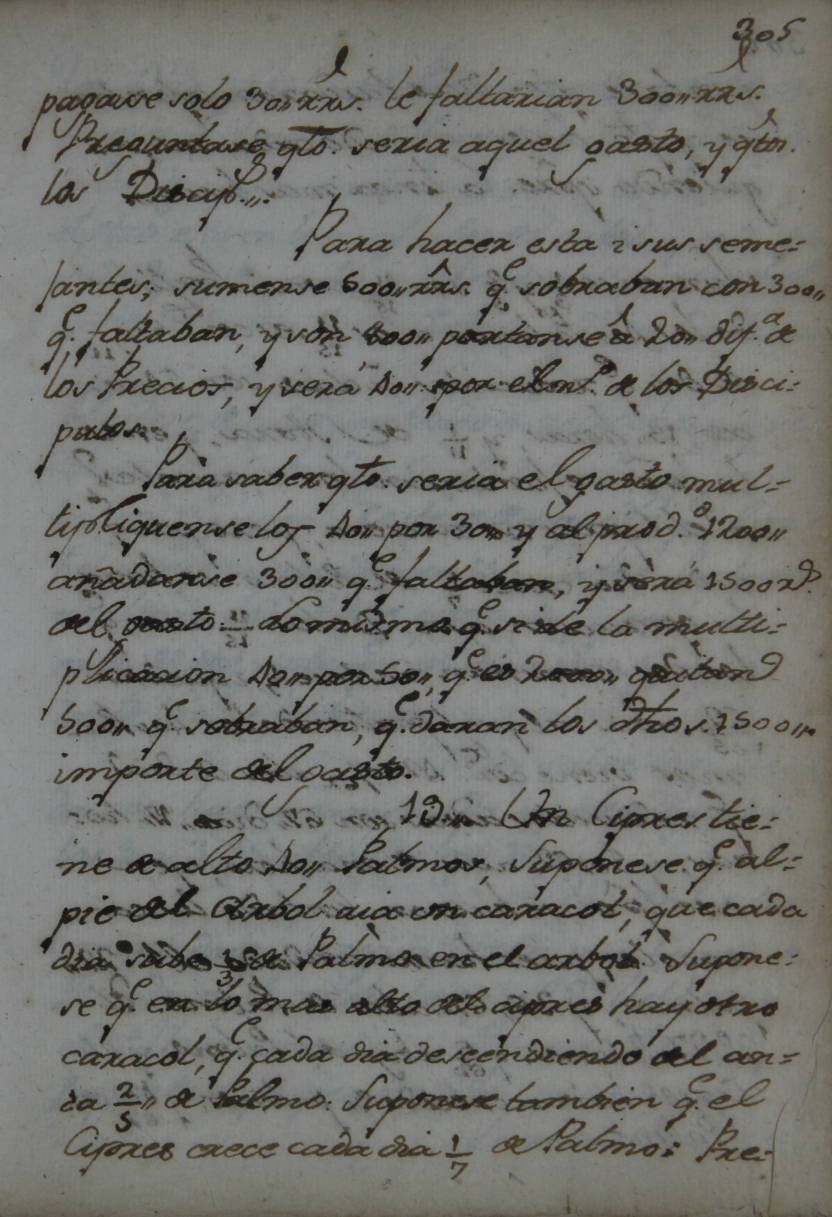 305
pagasse solo 30,, rrs. le faltarian 300,, rrs.
Preguntase qto. seria aquel gasto, y qtos.
los Discip.s,,.
Para hacer esta i sus seme-
jantes; sumense 500,, rrs. qe sobraban con 300,,
qe. faltaban, y son 800,, partanse â 20,, dif.a de
los Precios, y será 40,, por el no. de los Disci-
pulos.
Para saber qto. seria el gasto mul-
tipliquense los 40,, por 30,, y al prod.o 1200,,
añadanse 300,, qe faltaban, y será 1500 rs.
del gasto. Lo mismo qe si de la multi-
plicacion 40,, por 50,, qe es 2000,, quitando
500,, qe sobraban, qe daran los dhos. 1500,,
importe del gasto.
13,, Un Cipres tie-
ne de alto 40,, Palmos, Suponese qe. al-
pie del Arbol aia un caracol, que cada
dia sube 1/3 de Palmo en el arbol. Supone-
se qe. en lo mas alto del cipres hay otro
caracol, qe. cada dia descendiendo del an-
ia 2/5,, de Palmo: Suponese tambien qe. el
Cipres crece cada dia 1/7 de Palmo: Pre-